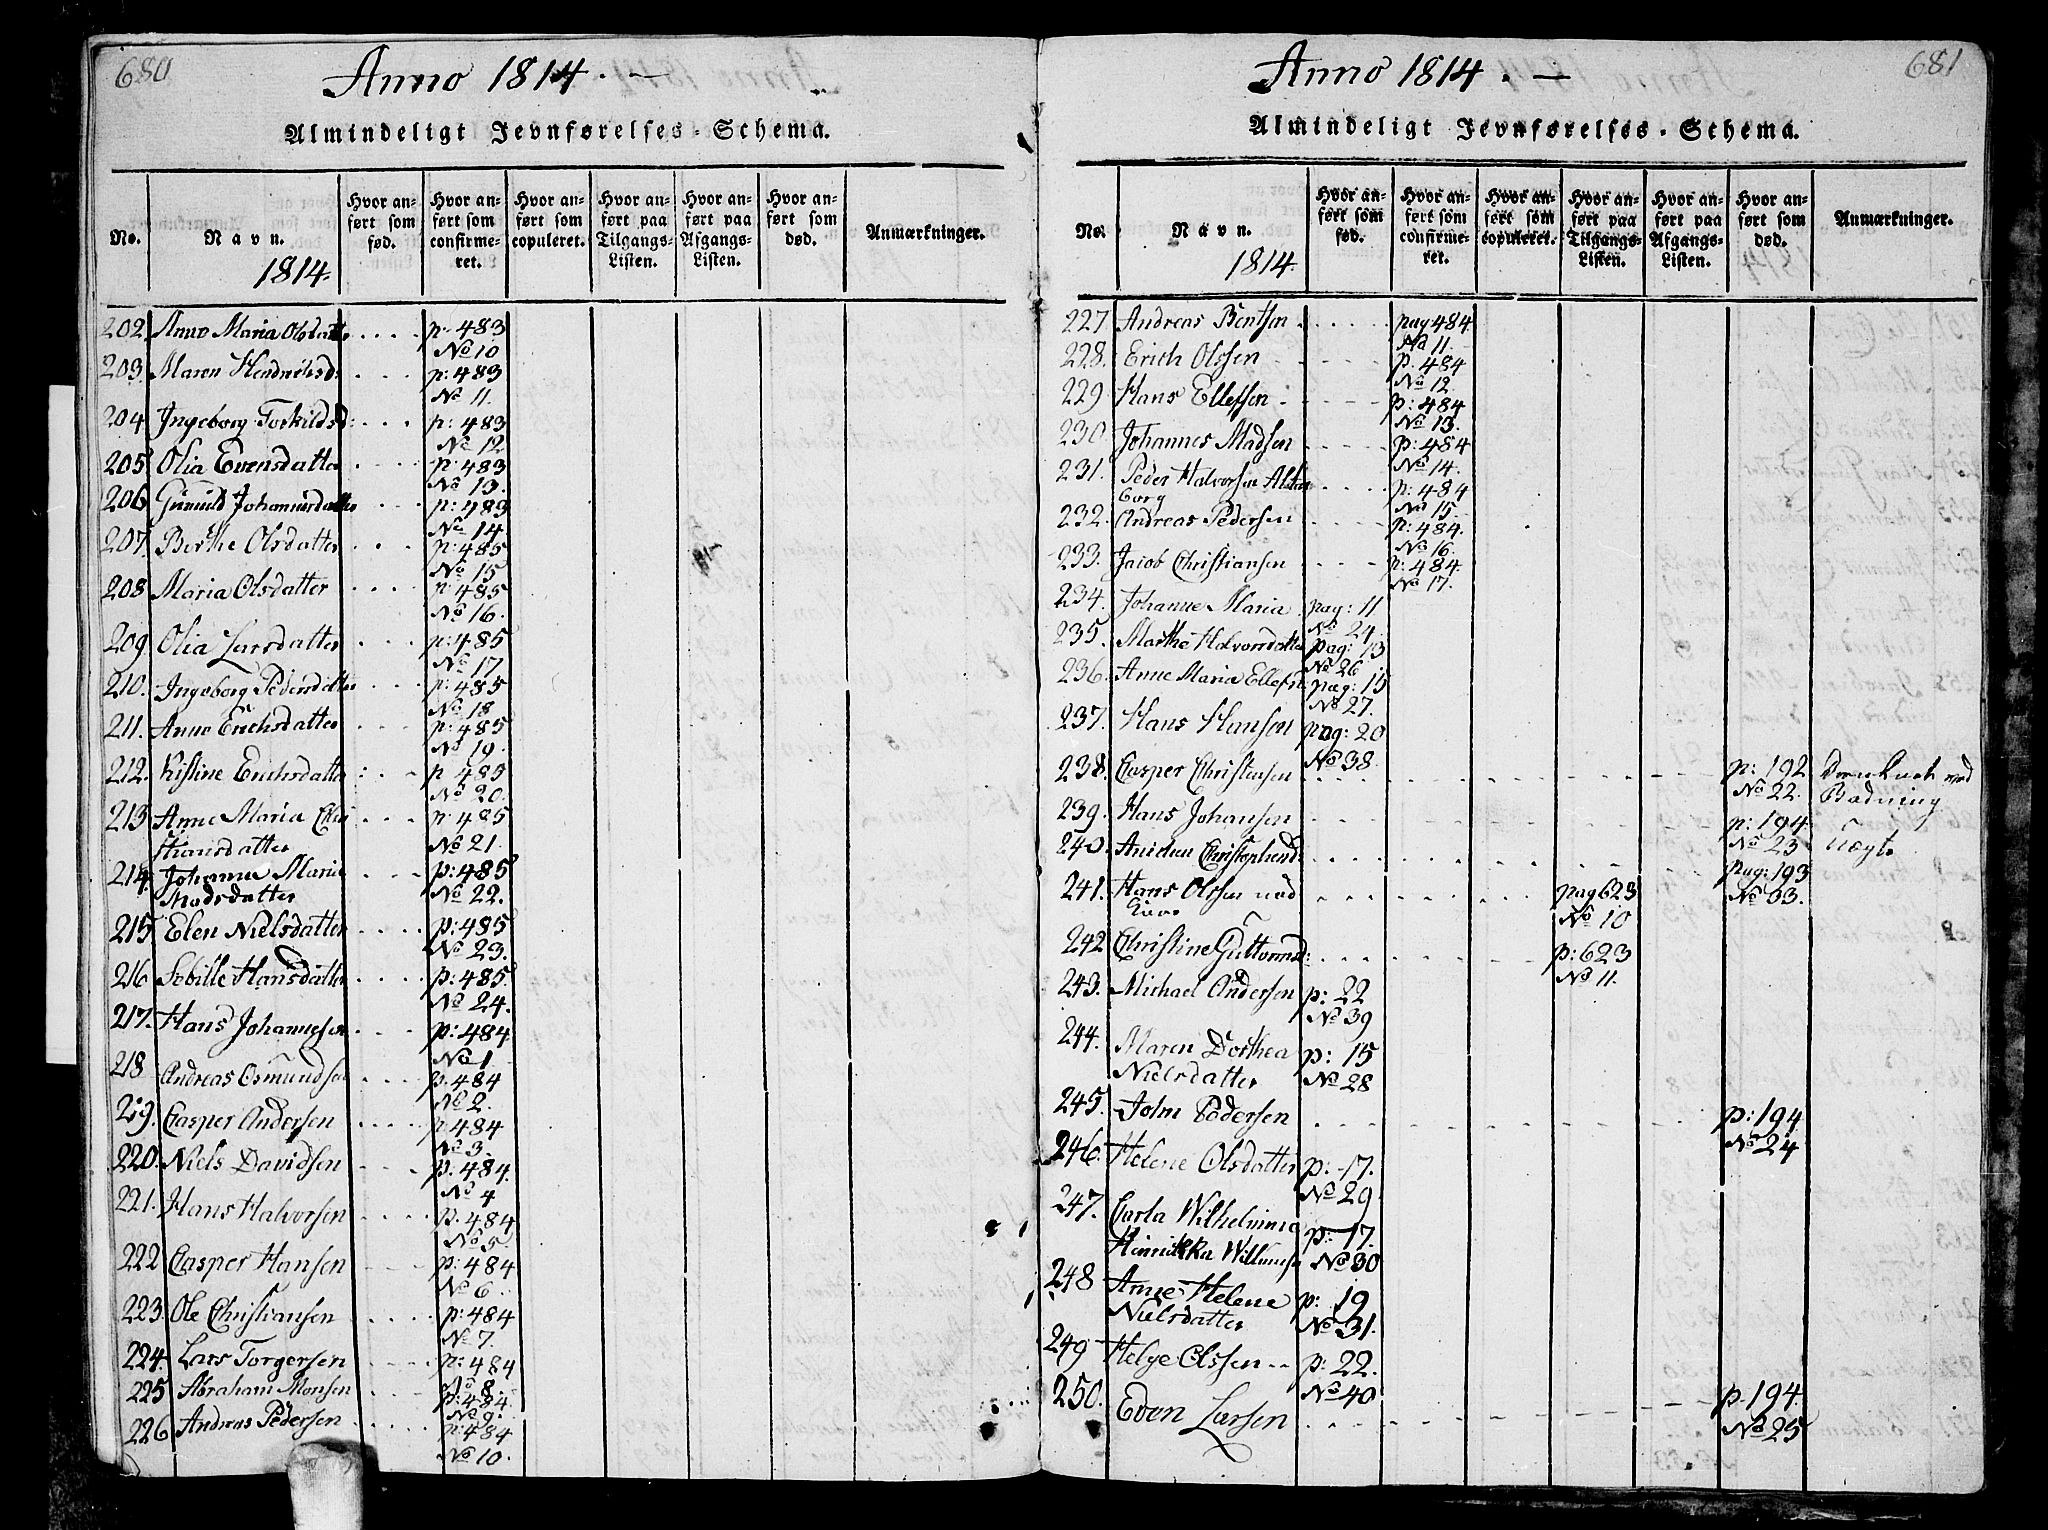 680
Anno 1814.
Almindeligt Jevnførelses-Schema.
No.
Navn.
1814.
Hvor anført som fød.
Hvor anført som confirmeret.
Hvor anført som copuleret.
Hvor anført paa Tilgangs-Listen.
Hvor anført paa Afgangs-Listen.
Hvor anført som død.
Anmærkninger.
202. Anne Maria Olsdatter .... p. 483
No 10
203. Maren Hendrichsd: . . . p: 483
No 11.
204. Ingeborg Torkildsd: . . . p: 483
No 12
205. Olia Evensdatter . . . . p: 483
No 13.
206 Gunild Johannisdatter . . . p: 483
No 14
207. Berthe Olsdatter . . . p: 485
No 15
208 Maria Olsdatter . . . . p: 485
No 16.
209. Olia Larsdatter . . . p: 485
No 17
210. Ingeborg Pedersdatter . . . p: 485
No 18
211. Anne Erichsdatter . . . p: 485
No 19.
212. Kistine Erichsdatter : . . p 485
No 20.
213 Anne Maria Chri . . . p: 485
stiansdatter No 21
214. Johanne Maria . . . p: 485
Madsdatter No 22.
215 Elen Nielsdatter . . . . p: 485
No 23.
216 Sebille Hansdatter . . . . p: 485.
No 24.
217. Hans Johannesen . . . p: 484
No 1
218 Andreas Osmundsen . . . . p. 484
No 2.
219. Casper Andersen . . . . p 484
No 3.
220. Niels Davidsen . . . p. 484.
No 4
221. Hans Halvorsen . . . . p. 484
No 5.
222 Casper Hansen . . . . p: 484
No 6
223. Ole Christiansen . . . . p: 484
No 7.
224. Lars Torgersen . . . . p: 484
No 8.
225 Abraham Monsen . . . p: 484.
No 9.
226 Andreas Pedersen . . . . p: 484
No 10.
681
Anno 1814.
Almindeligt Jevnførelses-Schema.
No.
Navn.
1814.
Hvor anført som fød.
Hvor anført som confirmeret.
Hvor anført som copuleret.
Hvor anført paa Tilgangs-Listen.
Hvor anført paa Afgangs-Listen.
Hvor anført som død.
Anmærkninger.
227 Andreas Bentsen . . . . . pag 484
No 11.
228. Erich Olssen - - - - - p. 484
No 12.
229 Hans Ellefsen . - - - - p: 484
No 13.
230 Johannes Madsen - - - - p: 484
No 14.
231. Peder Halvorsen . . . . p: 484
borg No 15.
232. Andreas Pedersen . . . . p: 484.
No 16.
233. Jacob Christiansen . . . . p: 484.
No 17.
234. Johanne Maria pag: 11
No 24.
235. Marthe Halvorsdatter pag: 13
No 26
236. Anne Maria Ellefsd: pag: 15
No 27.
237. Hans Hansen pag: 20
No 38.
238. Casper Christensen . . . . p: 192
No 22. med Badning
239. Hans Johansen . . . . p: 194.
No 23
240. Christophersd: . . . . pag: 193
No 33.
241. Hans Olssen med . . . . pag 623
No 10
242 Christine Guttormsd: . . . . p: 623
No 11.
243. Michael Andersen p: 22
No 39
244. Maren Dorthea p: 15
Nielsdatter No 28
245. John Pedersen . . . . p: 194.
No 24
246. Helene Olsdatter p: 17.
No 29.
247. Carla Wilhelmina p: 17.
No 30
248 Anne Helene p: 19
Nielsdatter No 31.
249 Helge Olssen p: 22.
No 40
250. Even Larsen . . . . p. 194.
No 25